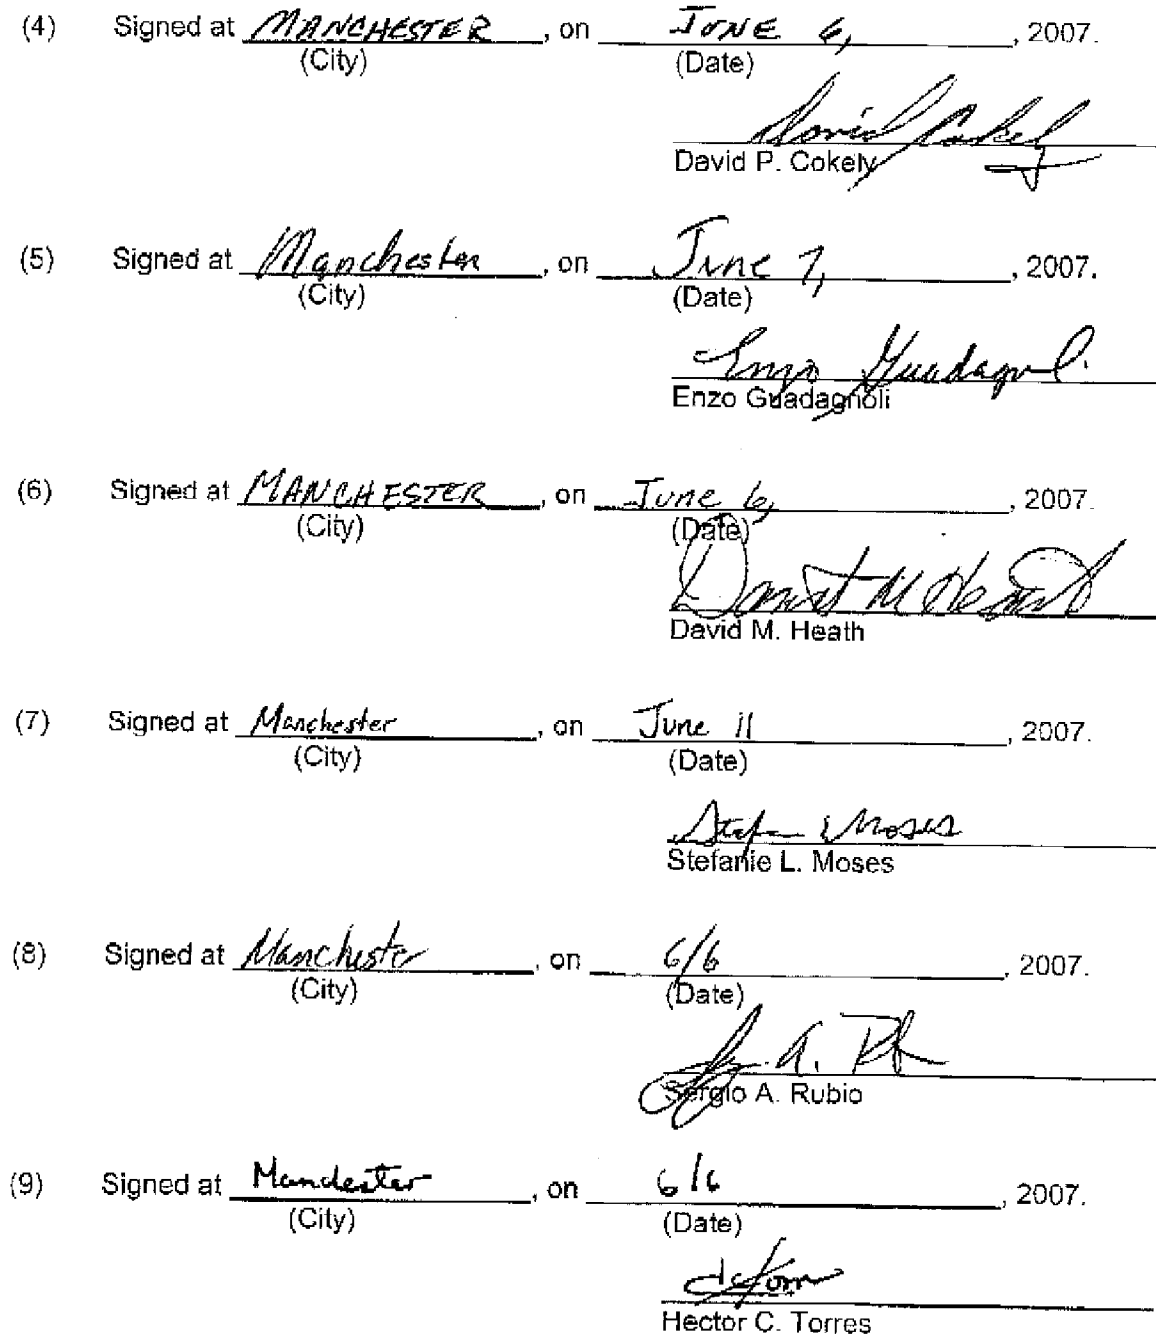 (4) Signed at MANCHESTER, on JUNE 6, , 2007.
(City) (Date)
David Cokely
David P. Cokely
(5) Signed at Manchester, on June 7, , 2007.
(City) (Date)
Enzo Guadagnoli
Enzo Guadagnoli
(6) Signed at MANCHESTER, on June 6, , 2007.
(City) (Date)
David M Heath
David M. Heath
(7) Signed at Manchester, on June 11, 2007.
(City) (Date)
Moses
Stefanie L. Moses
(8) Signed at Manchester, on 6/6, 2007.
(City) (Date)
A.
Sergio A. Rubio
(9) Signed at Manchester, on 6/6, 2007.
(City) (Date)
Hector C. Torres